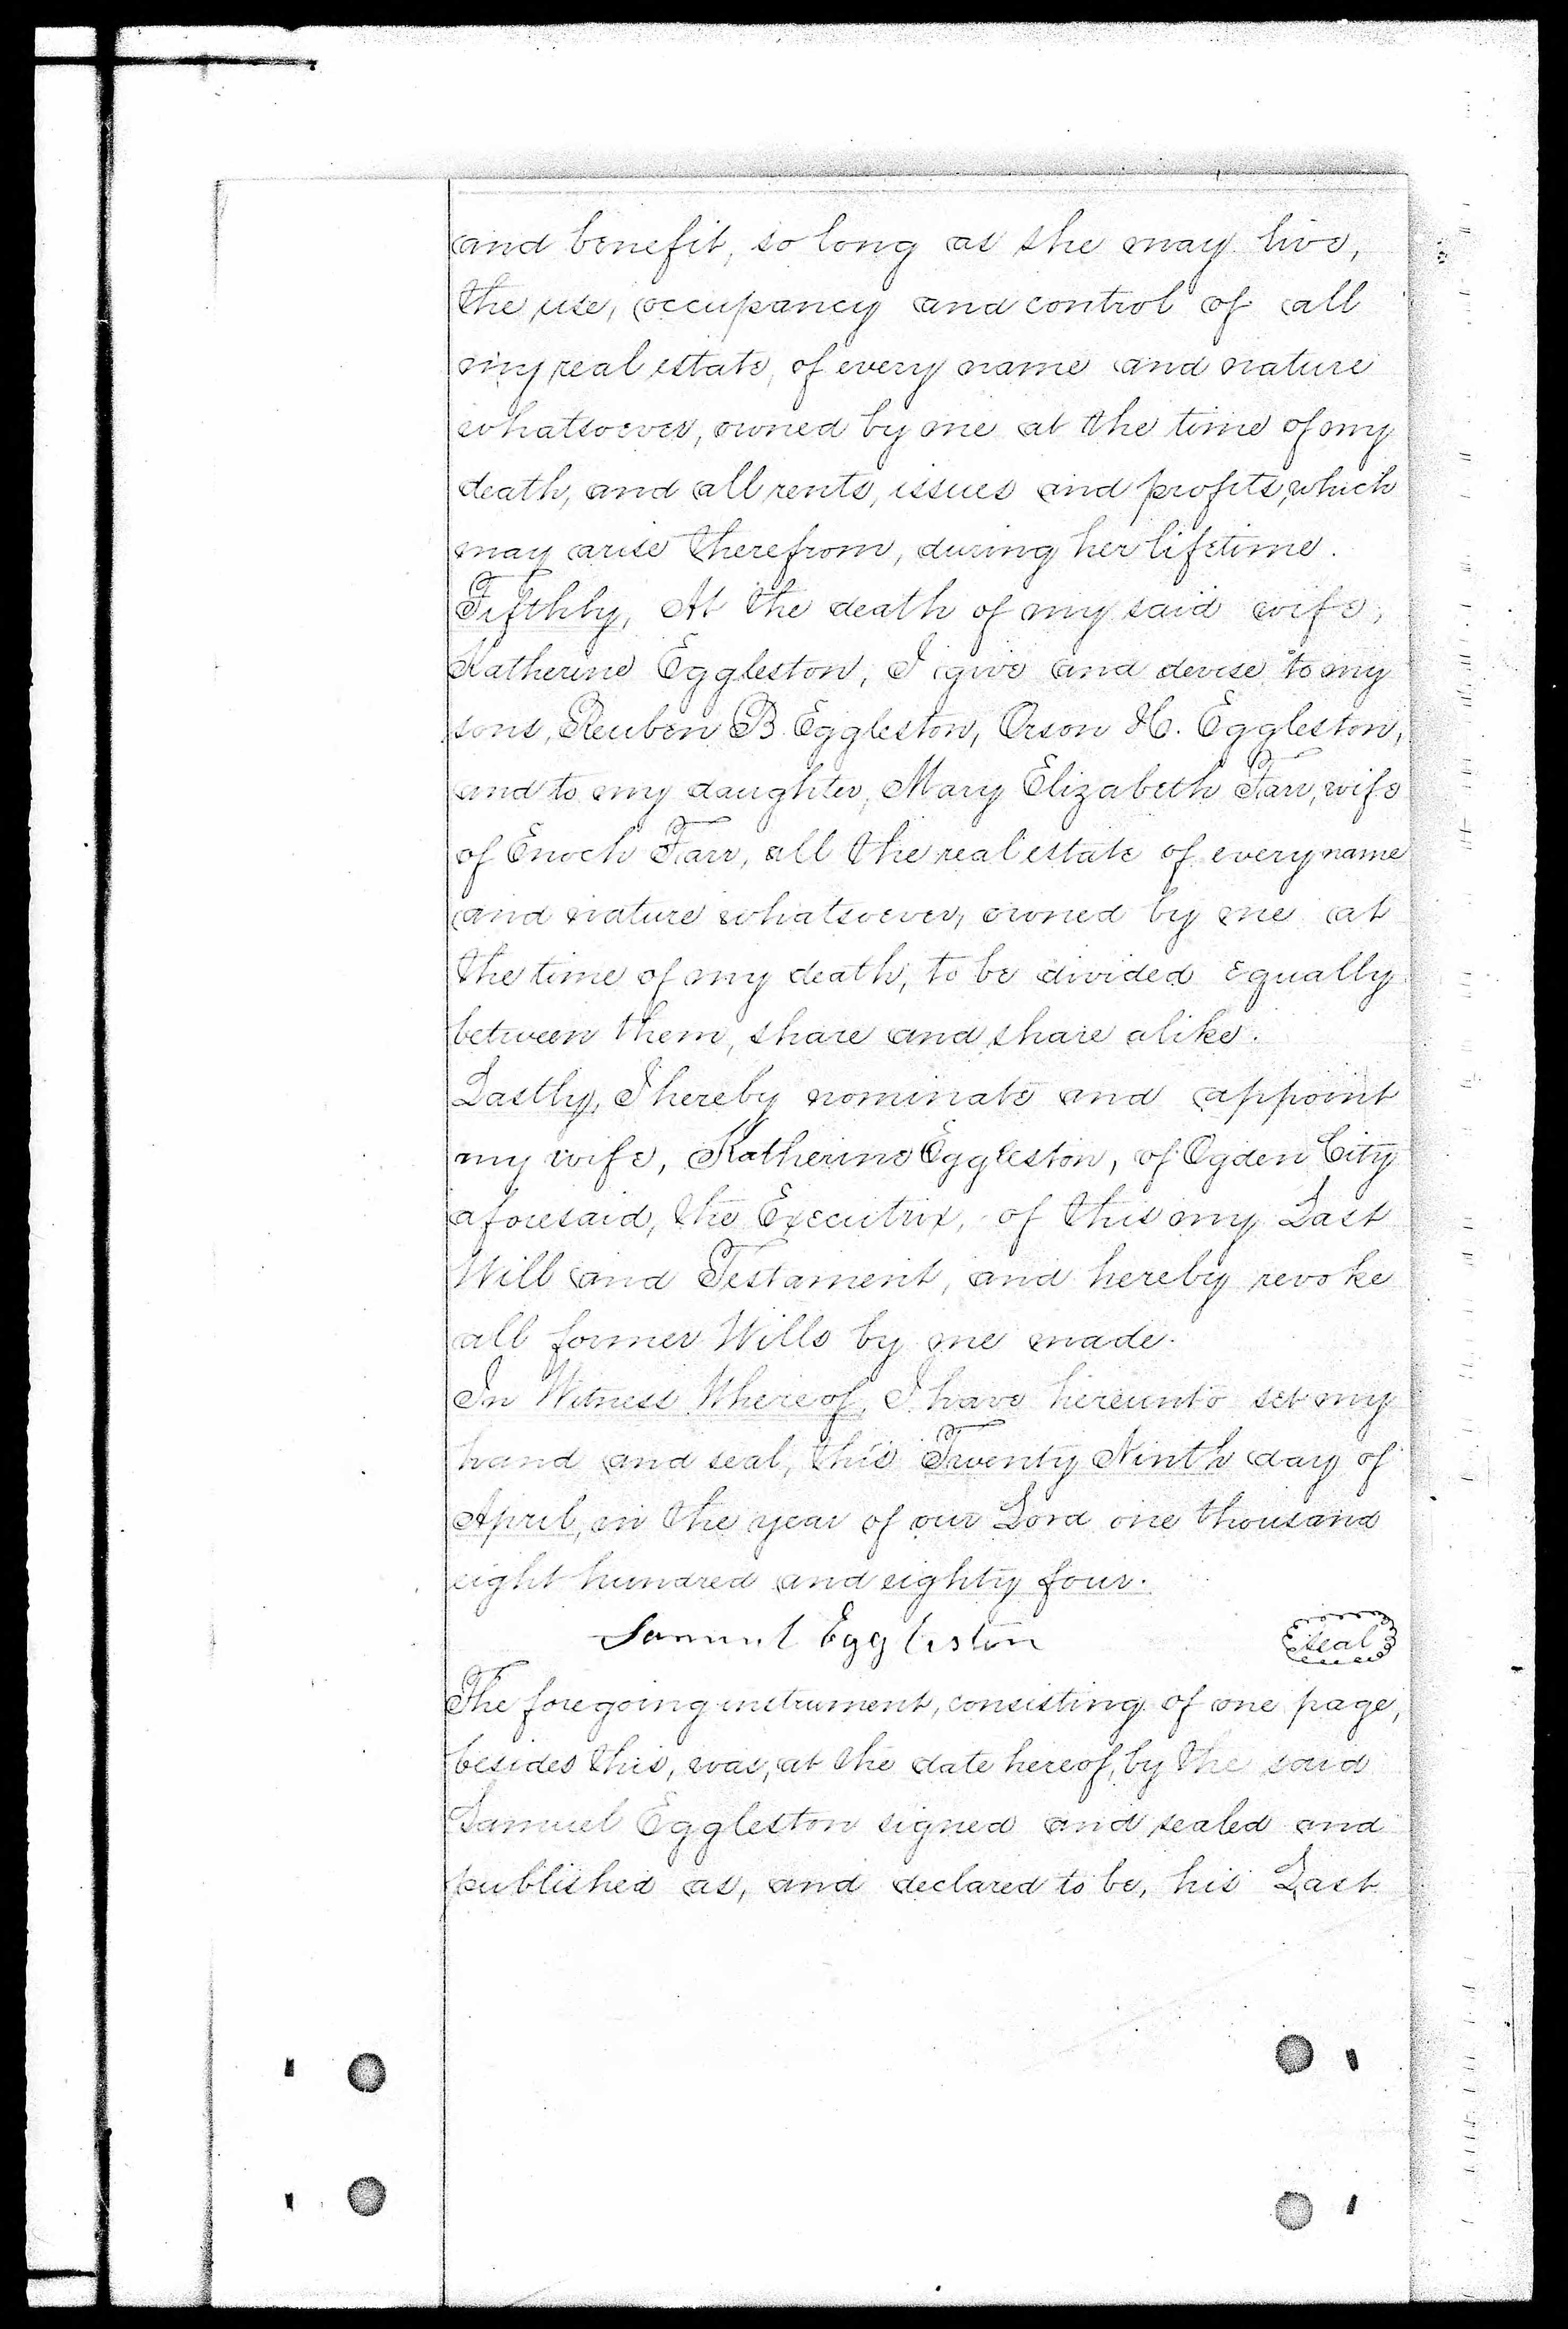 and benefit, so long as she may live,
the use, occupancy and control of all
my real estate, of every name and nature
whatsoever, owned by me at the time of my
death, and all rents, issues and profits, which
may arise therefrom, during her lifetime.
Fifthly, At the death of my said wife,
Katherine Eggleston, I give and devise to my
sons, Reuben B. Eggleston, Orson H. Eggleston,
and to my daughter, Mary Elizabeth Farr, wife
of Enoch Farr, all the real estate of every name
and nature whatsoever, owned by me at
the time of my death, to be divided equally
between them, share and share alike.
Lastly, I hereby nominate and appoint
my wife, Katherine Eggleston, of Ogden City
aforesaid, the Executrix, of this my Last
Will and Testament, and hereby revoke
all former Wills by me made.
In Witness Whereof, I have hereunto set my
hand and seal, this Twenty Ninth day of
April, in the year of our Lord one thousand
eight hundred and eighty four.
Samuel Eggleston seal
The foregoing instrument, consisting of one page,
besides this, was, at the date hereof, by the said
Samuel Eggleston signed and sealed and
published as, and declared to be, his Last